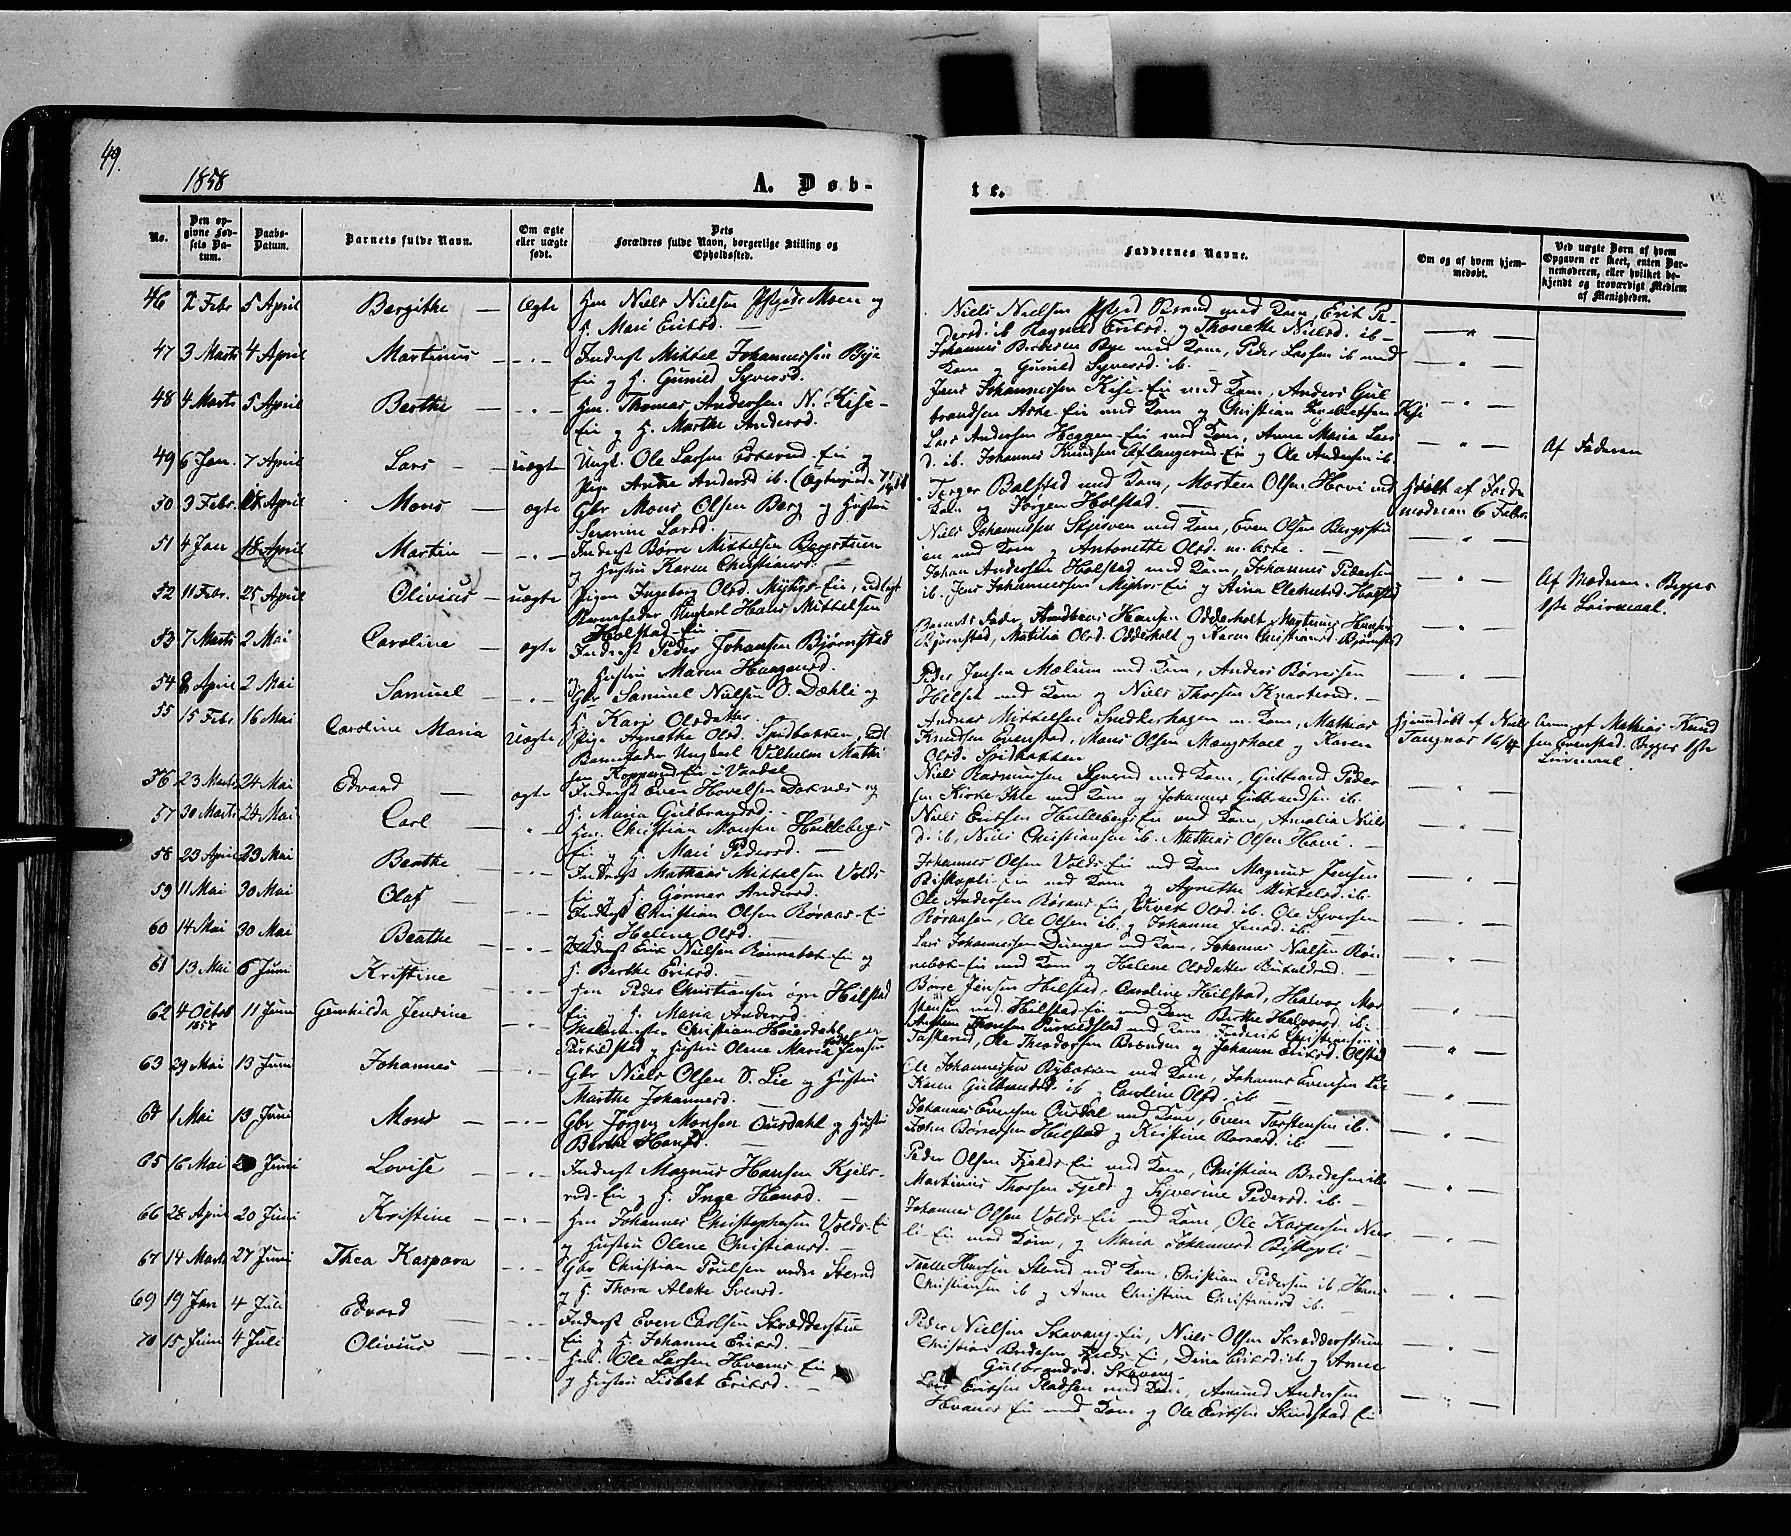 49.
1858
A. Døb-
te.
No.
Den opgivne Fødsels Datum.
Daabs-Datum.
Barnets fulde Navn.
Om ægte eller uægte født.
Dets Forældres fulde Navn, borgerlige Stilling og Opholdssted.
Faddernes Navne.
Om og af hvem hjemmedøbt.
Ved uægte Børn af hvem Opgaven er skeet, enten Barnemoderen, eller hvilket bekjendt og troværdigt Medlem af Menigheden.
46 2 Febr 5 April Bergithe Ægte Hm Niels Nielsen Moen og
H. Mari Eriksd.
Niels Nielsen med Kone, Erik Pe-
dersd. ib. Ragnild Eriksd. og Thonette Nielsd. ib.
47 3 Marts 4 April Martinus Inderst Mikkel Johannessen Bye
Ei og H. Gunild Syversd.
Johannes Bredesen Bye med Kone, Peder Larsen ib. med
Kone og Gunild Syversd. ib.
48 4 Marts 5 April Berthe Hm. Thomas Andersen N. Kise-
Ei og H. Marthe Andersd.
Jens Johannessen Kise-Ei med Kone, Anders Gul
brandsen Aske-Ei med Kone og Christian Kise
49 6 Jan. 7 April Lars uægte Ungk. Ole Larsen Ei og
Pige Anne Andersd ib.
Lars Andersen Heggen-Ei med Kone, Anne Maria Lars
d. ib. Johannes Knudsen Aflangerud-Ei og Ole Andersen ib.
Af Faderen
50 3 Febr. 18 April Mons ægte Gbr Mons Olsen Berg og Hustru
Severine Larsd.
Torger Balstad med Kone, Morten Olsen Hovi med
Kone og Jørgen Holstad.
Hjdøbt af Jorde
moderen 6 Febr.
51 4 Jan 18 April Martin Inderst Børre Mikkelsen Bergstuen
og Hustru Karen Christiansd.
Niels Johannessen Skjerven med Kone, Even Olsen Bergstu
en med Kone og Antonette Olsd.
52 11 Febr. 25 April Olivius uægte Pigen Ingeborg Olsd. Myhrs-Ei, udlagt
Barnefader Ungkarl Hans Mikkelsen
Holstad-Ei
Johan Andersen Holstad med Kone, Johannes Pedersen
ib. Jens Johannessen Myhrs-Ei og Anna
Af Moderen. Begges
1ste Leiermaal.
53 7 Marts 2 Mai Caroline ægte Inderst Peder Johansen Bjørnstad
og Hustru Maren Haagensd.
Barnets Fader, Andreas Hansen Odderholt, Martinus Hansen
Bjørnstad, Matilia Olsd. Odderholt og Karen Christiansd. Bjørnstad
54 8 April 2 Mai Samuel Gbr Samuel Nielsen S. Dæhli og
H. Kari Olsdatter
Peder Jensen Mælum med Kone, Anders Børresen
Hilset med Kone og Niels Thorsen
55 15 Febr 16 Mai Caroline Maria Uægte Pige Agnethe Olsd. Spidbakken, udl
Barnefader Ungkarl Vilhelm Mathi
sen Kopperud-Ei i Vardal
Andreas Mikkelsen Snekkerhagen m. Kone, Mathias
Knudsen Evenstad, Mons Olsen Mængshoel og Karen
Olsd. Spidbakken
Hjemmdøbt af Niels
Tangnæs 16/4
Anm. af Mathias Knud
sen Evenstad. Begges 1ste
Leiermaal.
56 23 Marts 24 Mai Edvard ægte Inderst Even Hovelsen Doknæs og
H. Maria Gulbrandsd.
Niels Rasmussen med Kone, Gulbrand Peder
sen Kirke med Kone og Johannes Gulbrandsen ib.
57 30 Marts 24 Mai Carl Hm. Christian Monsen Hulleberg-
Ei og H. Mari Pedersd.
Niels Eriksen Hulleberg-Ei med Kone, Amalia Niels
d. ib, Niels Christiansen ib. Mathias Olsen Hovi.
58 23 April 23 Mai Berthe Inderst Mathias Mikkelsen Volds-
Ei og H. Gønner Andersd.
Johannes Olsen Volds-Ei med Kone Magnus Jensen
Biskopli-Ei med Kone og Agnethe Mikkelsd. ib.
59 11 Mai 30 Mai Olaf Inderst Christian Olsen Røraas-Ei
H. Helene Olsd.
Ole Andersen Røraas-Ei, Olsd. ib. Ole Syversen
Røraasen, Ole Olsen ib. og Johanne Jensd. ib.
60 14 Mai 30 Mai Beathe Inderst Erik Nielsen Rønnebæk-Ei og
H. Berthe Eriksd.
Lars Johannessen Dienger med Kone, Johannes Nielsen Røn-
nebæk-Ei med Kone og Helene Olsdatter
61 13 Mai 6 Juni Kristine Hm Peder Christiansen øgn Hilstad
Ei og H. Maria Andersd.
Børre Jensen Hilstad, Caroline Hilstad, Halvor Mor
tensen Hilstad-Ei med Kone Berthe Halvorsd. ib.
62 4 Octob 1857 11 Juni Gunhilda Jensine Christian Heierdahl
og Hustru Olene Maria Jensen
med Kone, Frederik Christiansen
Ole Theodorsen og Johanne Eriksd. Olstad
63 29 Mai 13 Juni Johannes Gbr Niels Olsen S. Lie og Hustru
Marthe Johannesd.
Ole Johannessen Rybakken med Kone, Johannes Evensen Lie
Karen Gulbrandsd. ib og Caroline Olsd. ib
64 1 Mai 13 Juni Mons Gbr Jørgen Monsen Ousdahl og Hustru
Berthe Hansd.
Johannes Evensen Ousdal med Kone, Even Torstensen ib.
Johan Børresen Hilstad og Kristine ib.
65 16 Mai 20 Juni Lovise Inderst Magnus Hansen Kjels-
rud-Ei og H. Inge Hansd.
Peder Olsen Fjelds-Ei med Kone, Christian Bredesen ib
Martinus Thorsen Fjeld og Syverine Pedersd. ib.
66 28 April 20 Juni Kristine Hm Johannes Christophersen Volds-Ei
og Hustru Olene Christiansd.
Johannes Olsen Volds-Ei med Kone, Ole Kaspersen
li-Ei med Kone, og Maria Johannesd. Biskopli
67 14 Marts 27 Juni Thea Kaspara Gbr Christian Poulsen nedre
og H. Thora Aleke Svensd.
Hansen med Kone, Christian Pedersen ib, Hans
Christiansen ib og Anne Christine Christiansd ib.
69 19 Jan 4 Juli Edvard Inderst Even Carlsen Skrædderstue
Ei og H. Johanne Eriksd.
Peder Nielsen Skavang-Ei, Niels Olsen Skrædderstuen
Christian Bredesen Fjelds-Ei, Dina Eriksd ib og Anne
Gulbrandsd. Skavang.
70 15 Juni 4 Juli Olivius Hm. Ole Larsen Hvams Ei
og Hustru Lisbet Eriksd.
Lars Eriksen Pladsen med Kone, Amund Andersen
Hvams Ei med Kone og Ole Eriksen Skindstad Ei